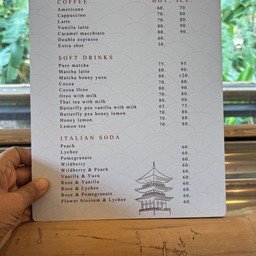 COFFEE HOT. ICE.
Americano 60. 70
Cappuccino 70. 80
Latte 70. 80
Vanilla latte 80. 90.
Caramel macchiato 80. 90.
Double espresso 60.
Extra shot 30.
SOFT DRINKS
Pure matcha 75. 95
Matcha latte 80. 90.
Matcha honey yuzu 90. 120.
Cocoa 70. 80.
Cocoa Oreo 80. 90.
Oreo with milk 70. 80.
Thai tea with milk 80. 90.
Butterfly pea vanilla with milk 65. 75.
Butterfly pea honey lemon 70. 80.
Honey lemon 70. 80.
Lemon tea 70. 80.
ITALIAN SODA
Peach 60.
Lychee 60.
Pomegranate 60.
Wildberry 60.
Wildberry & Peach 60.
Vanilla & Yuzu 60.
Rose & Vanilla 60.
Rose & Lychee 60.
Rose & Pomegranate 60.
Flower blossom & Lychee 60.